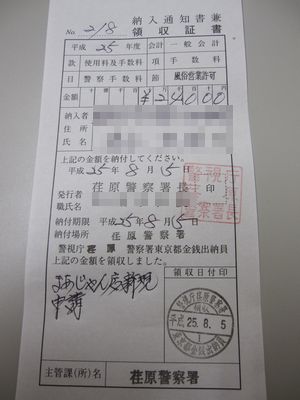 納入通知書兼
No. 218 領収証書
平成 25年度 会計 一般会計
款 使用料及手数料 項 手数料
目 警察手数料 節 風俗営業許可
金額 ¥24000
納入者
住所
氏名
上記の金額を納付してください。
平成25年8月5日
荏原警察署長
発行者
職氏名
納付期限 平成25年8月5日
納付場所 荏原警察署
警視庁 荏原 警察署東京都金銭出納員
上記の金額を領収しました。
まあじゃん店新規
申請
領収日付印
警視庁荏原警察署
領収
平成25.8.5
東京都金銭出納員
主管課(所)名 荏原警察署